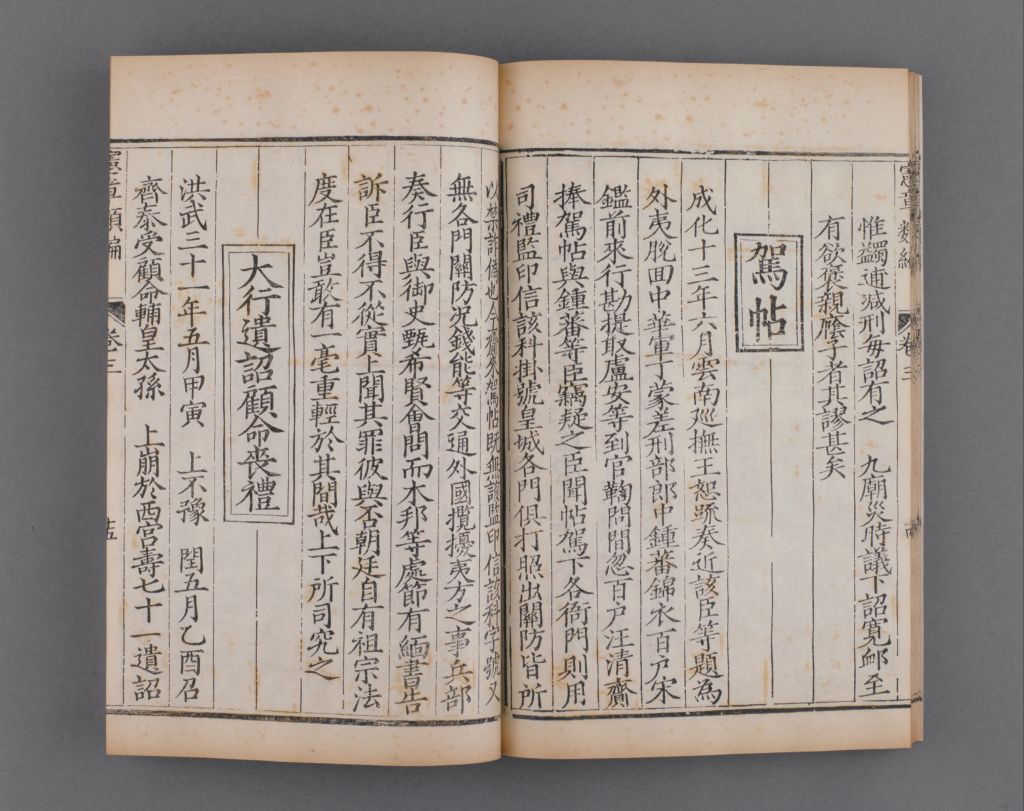 憲章類編
卷三
惟蠲逋減刑每詔有之　九廟災時議下詔寬邮至
有欲褒親廕子者其謬甚矣
駕帖
成化十三年六月雲南廵撫王恕䟽奏近該臣等題為
外夷脫囬中華軍丁蒙差刑部郎中鍾蕃錦衣百户宋
鑑前來行勘提取盧安等到官鞫問間忽百户汪清齎
捧駕帖與鍾蕃等臣竊疑之臣聞帖駕下各衙門則用
司禮監印信該科掛號皇城各門俱打照出關防皆所
以禁詐僞也今齎來駕帖既無該監印信該科字號又
無各門關防況錢能等交通外國攬擾夷方之事兵部
奏行臣與御史甄希賢會問而木邦等處節有緬書告
訴臣不得不從實上聞其罪彼與否朝廷自有祖宗法
度在臣豈敢有一毫重輕於其間哉上下所司究之
大行遺詔顧命丧禮
洪武三十一年五月甲寅　上不豫　閏五月乙酉召
齊泰受顧命輔皇太孫　上崩於西宫壽七十一遺詔
憲章類編
卷三